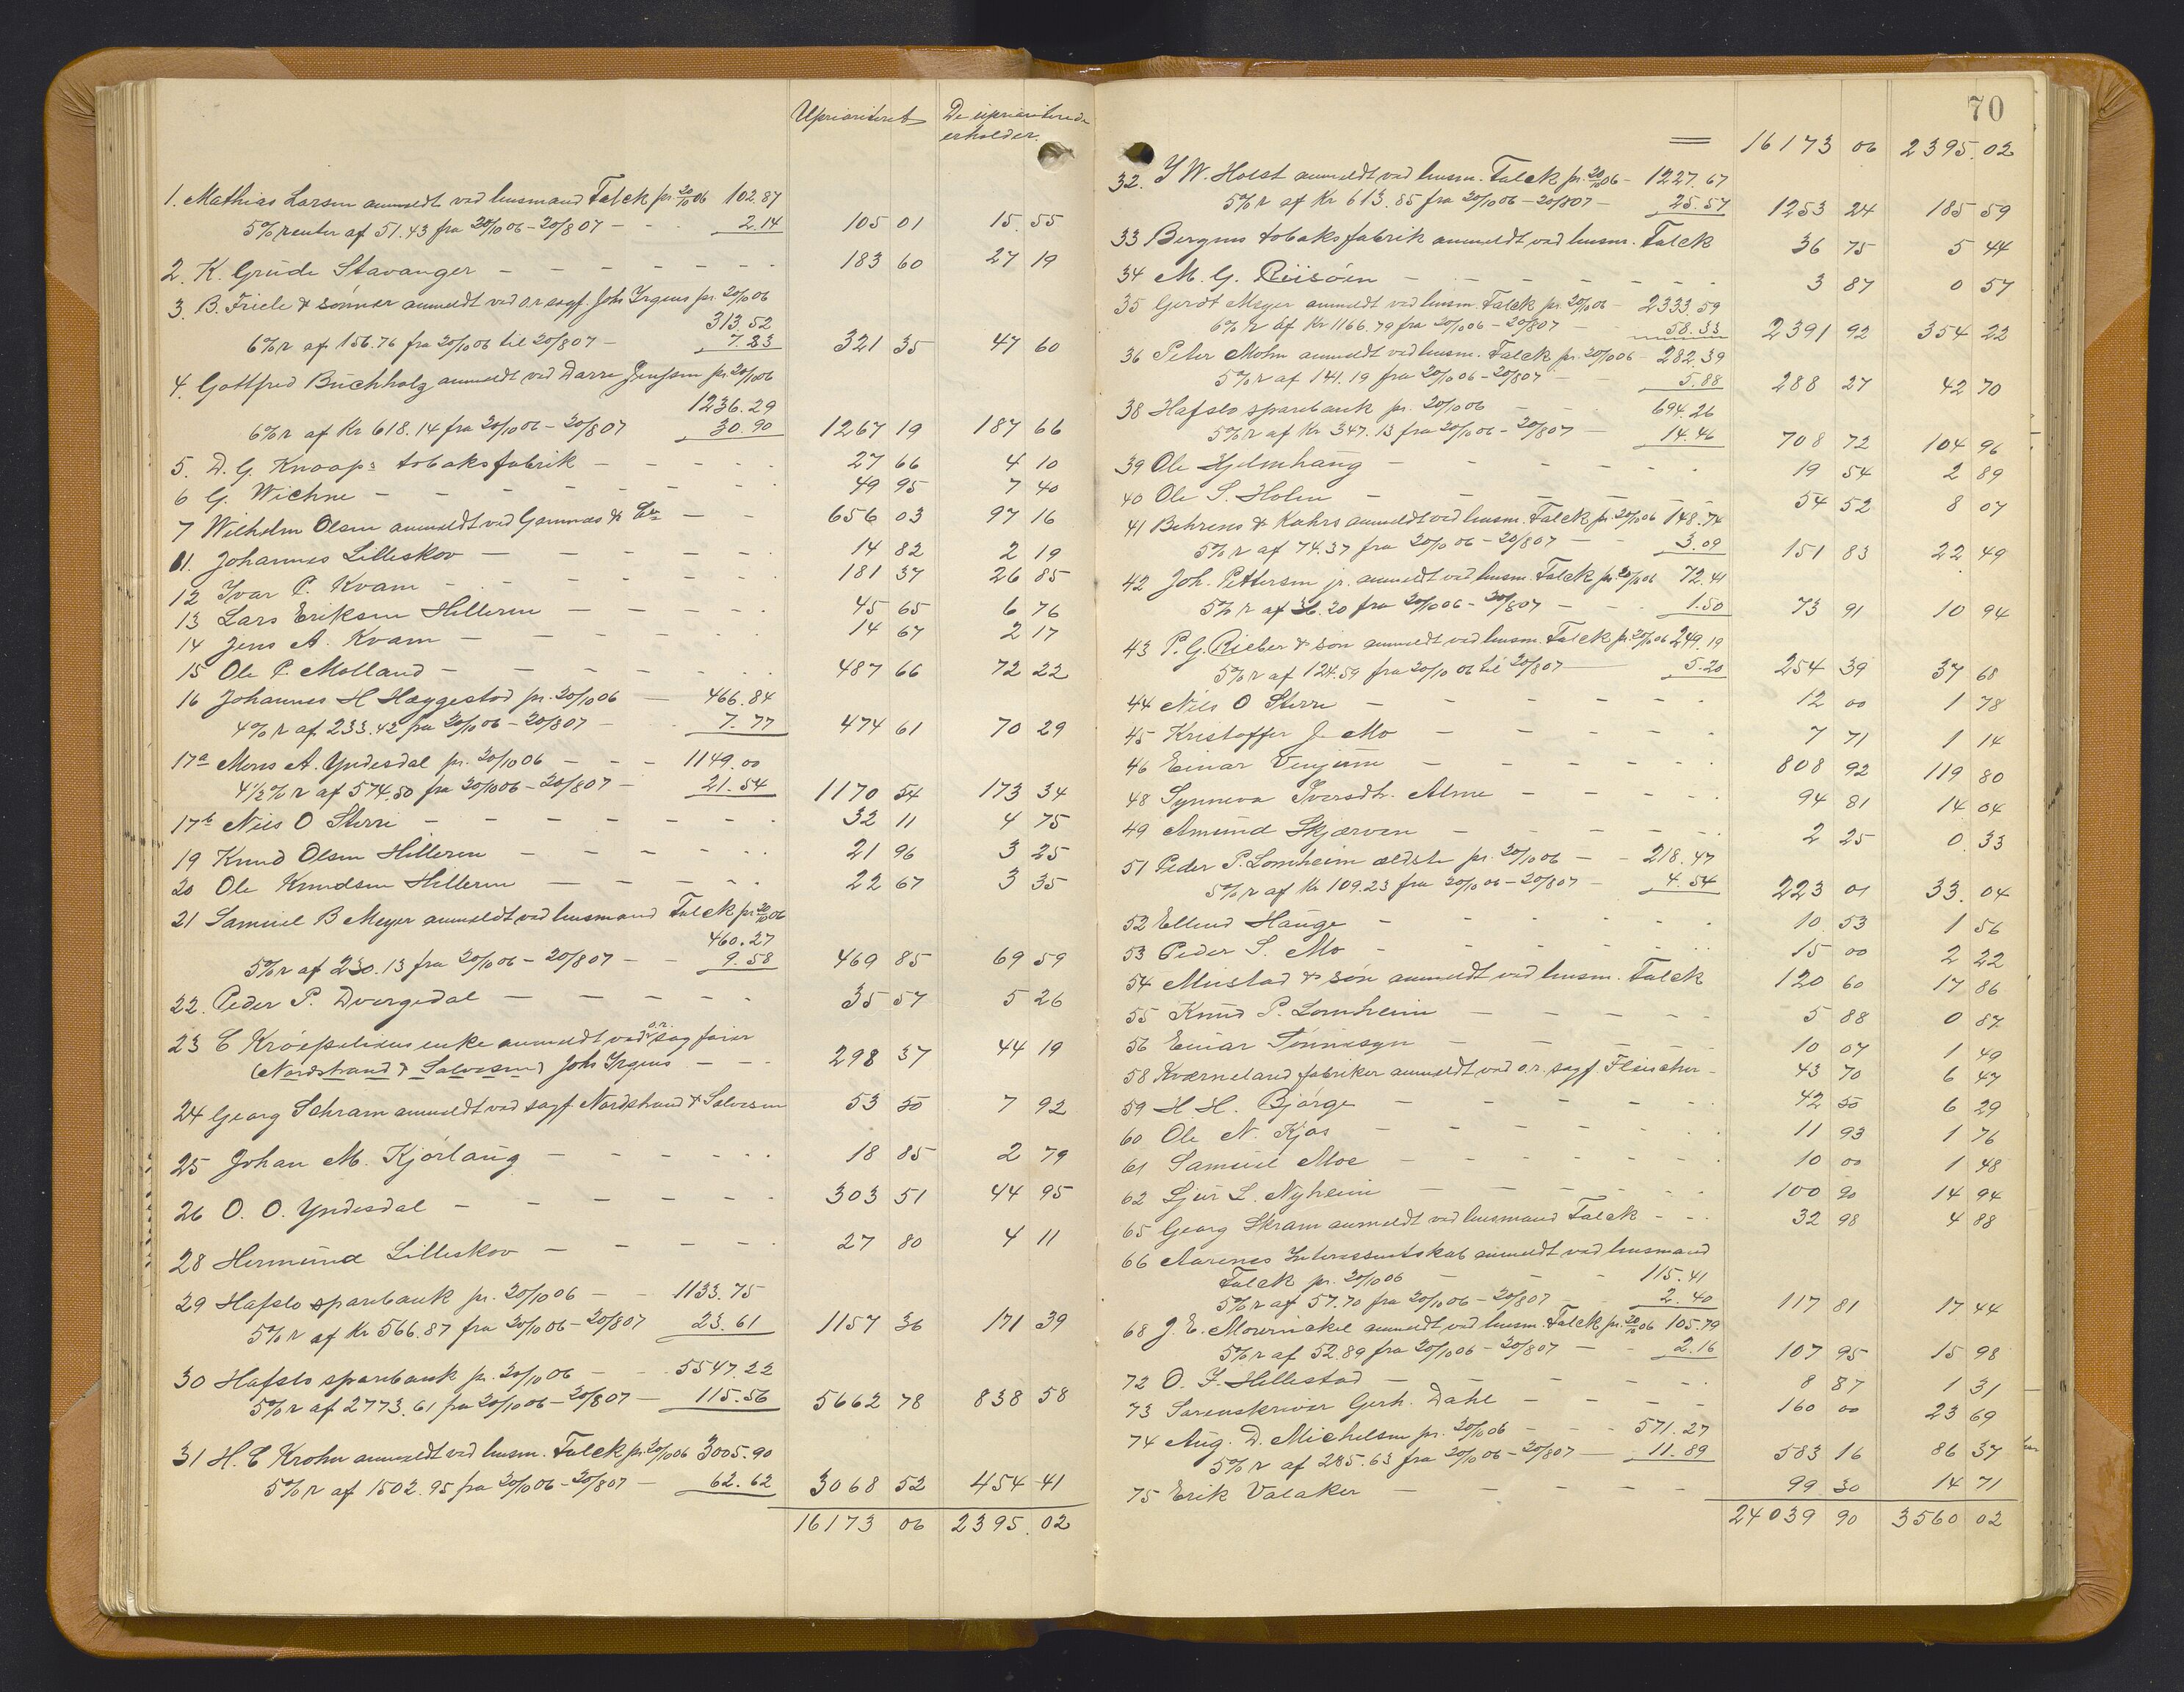 Uprioriteret De uprioriterede
erholder.
1. Mathias Larsen anmeldt ved husmand Falck pr. 20/10 06 102.87
5% renter af 51.43 fra 20/10 06 - 20/8 07 - 2.14 105 01 15.55
2. K. Grude Stavanger - 183 60 27 19
3. B. Friele & sønner anmeldt ved o.r.sagf. Johs Irgens pr. 20/10 06
313.52
6% r af 156.76 fra 20/10 06 til 20/8 07 - 7.83 321 35 47 60
4. Gottfred Buchholz anmeldt ved Darre Jenssen pr 20/10 06
1236.29
6% r af Kr 618.14 fra 20/10 06 - 20/8 07 30.90 1267 19 187 66
5. D. G. Knoops tobaksfabrik - 27 66 4 10
6 G. Wichne - 49 95 7 40
7 Wilhelm Olsen anmeldt ved Gamnæs & Co - 656 03 97 16
11. Johannes Lilleskov - 14 82 2 19
12 Ivar P. Kvam - 181 37 26 85
13 Lars Eriksen Hilleren - 45 65 6 76
14 Jens A. Kvam - 14 67 2 17
15 Ole P. Molland - 487 66 72 22
16 Johannes H Hæggestad pr. 20/10 06 - 466.84
4% r af 233.42 fra 20/10 06 - 20/8 07 - 7.77 474 61 70 29
17a Mons A. Yndesdal pr. 20/10 06 - 1149.00
4 1/2 % r af 574.50 fra 20/10 06 - 20/8 07 - 21.54 1170 54 173 34
17b Nils O Sterri - 32 11 4 75
19 Knud Olsen Hilleren - 21 96 3 25
20 Ole Knudsen Hilleren - 22 67 3 35
21 Samuel B Meyer anmeldt ved husmand Falck pr 20/10 06
460.27
5% r af 230.13 fra 20/10 06 - 20/8 07 - 9.58 469 85 69 59
22. Peder P. Dvergedal - 35 57 5 26
23 C Krøepeliens enke anmeldt ved o.r. sagfører
(Nordstrand & Salvesen) Johs Irgens - 298 37 44 19
24 Georg Schram anmeldt ved sagf. Nordstrand & Salvesen 53 50 7 92
25 Johan M. Kjørlaug - 18 85 2 79
26 O. O. Yndesdal - 303 51 44 95
28 Hermund Lilleskov - 27 80 4 11
29 Hafslo sparebank pr. 20/10 06 - 1133.75
5% r af Kr 566.87 fra 20/10 06 - 20/8 07 23.61 1157 36 171 39
30 Hafslo sparebank pr. 20/10 06 - 5547.22
5% r af 2773.61 fra 20/10 06 - 20/8 07 - 115.56 5662 78 838 58
31 H. C Krohn anmeldt ved husm. Falck pr. 20/10 06 3005.90
5% r af 1502.95 fra 20/10 06 - 20/8 07 - 62.62 3068 52 454 41
16173 06 2395.02
70
16173 06 2395.02
32. J W. Holst anmeldt ved husm. Falck pr. 20/10 06 - 1227.67
5% r af Kr 613.85 fra 20/10 06 - 20/8 07 - 25.57 1253 24 185 59
33 Bergens tobaksfabrik anmeldt ved husm. Falck 36 75 5 44
34 M. G. Riisøen - 3 87 0 57
35 Gerdt Meyer anmeldt ved husm. Falck pr. 20/10 06 - 2333.59
6% r af Kr 1166.79 fra 20/10 06 - 20/8 07 - 58.33 2391 92 354 22
36 Peter Mohn anmeldt ved husm. Falck pr. 20/10 06 - 282.39
5% r af 141.19 fra 20/10 06 - 20/8 07 - 5.88 288 27 42 70
38 Hafslo sparebank pr. 20/10 06 - 694.26
5% r af Kr 347.13 fra 20/10 06 - 20/8 07 - 14.46 708 72 104 96
39 Ole Hjelmhaug - 19 54 2 89
40 Ole S. Holen - 54 52 8 07
41 Behrens & Kahrs anmeldt ved husm. Falck pr. 20/10 06 148.74
5% r af 74.37 fra 20/10 06 - 20/8 07 - 3.09 151 83 22 49
42 Joh. Pettersen jr. anmeldt ved husm. Falck pr 20/10 06 72.41
5% r af 36.20 fra 20/10 06 - 20/8 07 - 1.50 73 91 10 94
43 P. G. Rieber & søn anmeldt ved husm. Falck pr. 20/10 06 249.19
5% r af 124.59 fra 20/10 06 til 20/8 07 5.20 254 39 37 68
44 Nils O Sterri - 12 00 1 78
45 Kristoffer J. Mo - 7 71 1 14
46 Einar Venjum - 808 92 119 80
48 Synneva Iversdtr. Alme - 94 81 14 04
49 Amund Skjærven - 2 25 0.33
51 Peder P. Lomheim ældste pr. 20/10 06 - 218.47
5% r af Kr 109.23 fra 20/10 06 - 20/8 07 - 4.54 223 01 33.04
52 Ellend Hauge - 10 53 1 56
53 Peder S. Mo - 15 00 2 22
54 Mustad & søn anmeldt ved husm. Falck 120 60 17 86
55 Knud P. Lomheim - 5 88 0 87
56 Einar Tønnesyn - 10 07 1 49
58 Kværneland fabriker anmeldt ved o.r. sagf. Fleischer - 43 70 6 47
59 H. H. Bjørge - 42 50 6 29
60 Ole N. Kjos - 11 93 1 76
61 Samuel Moe - 10 00 1 48
62 Sjur L. Nyheim - 100 90 14 94
65 Georg Skram anmeldt ved husmand Falck - 32 98 4 88
66 Aarenes Interessentskab anmeldt ved husmand
Falck pr. 20/10 06 - 115.41
5% r af 57.70 fra 20/10 06 - 20/8 07 2.40 117 81 17 44
68 J. E. Mowinckel anmeldt ved husm. Falck pr. 20/10 06 105.79
5% r af 52.89 fra 20/10 06 - 20/8 07 - 2.16 107 95 15 98
72 O. J. Hillestad - 8 87 1 31
73 Sorenskriver Gerh. Dahl - 160 00 23 69
74 Aug. D. Michelsen pr. 20/10 06 - 571.27
5% r af 285.63 fra 20/10 06 - 20/8 07 - 11.89 583 16 86 37
75 Erik Valaker - 99 30 14 71
24039 90 3560 02